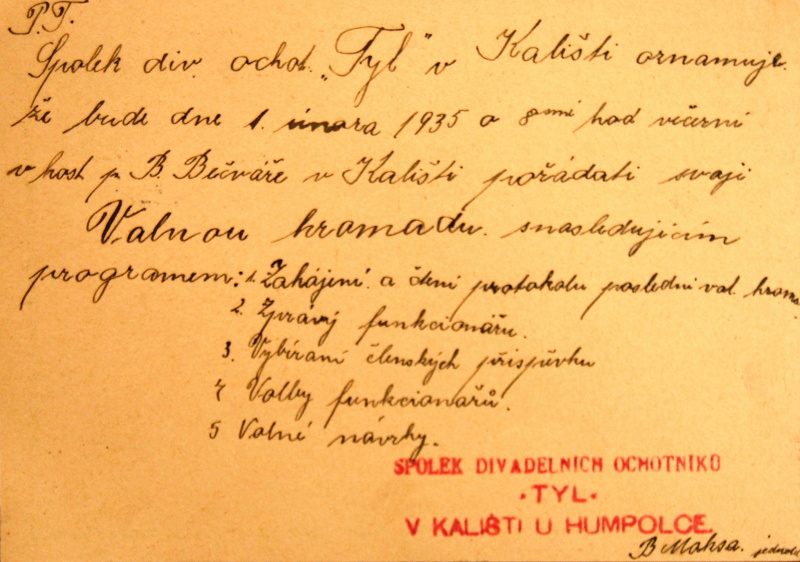 P.T.
Spolek div. ochot. „Tyl“ v Kališti oznamuje
že bude dne 1. února 1935 o 8mé hod večerní
v host p. B. Bečváře v Kališti pořádati svoji
Valnou hromadu. snasledujicím
programem: 1. Zahájení a čteni protokolu posledni val. hrom.
2. Zprávy funkcionářu.
3. Vybíraní členských přispěvku
4 Volby funkcionařů.
5 Volné návrhy.
SPOLEK DIVADELNÍCH OCHOTNÍKŮ
·TYL·
V KALIŠTI U HUMPOLCE.
B Maksa. jednatel